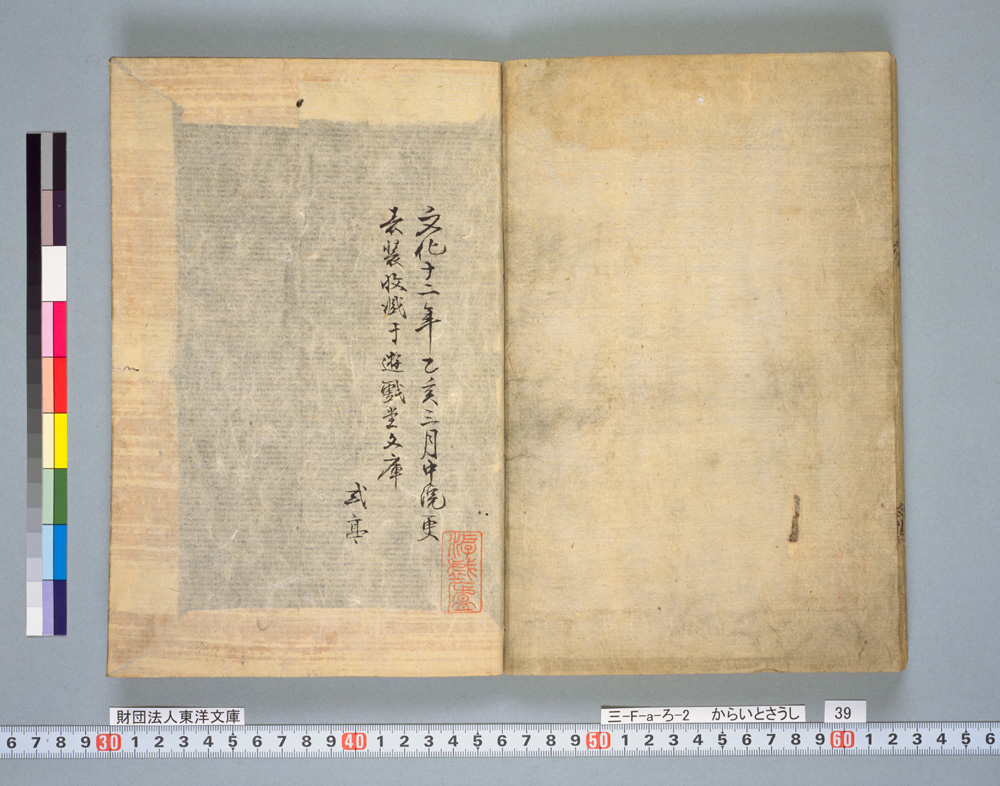 文化十二年乙亥三月中浣更
表装收藏于遊戯堂文庫
式亭
財団法人東洋文庫
三-F-a-ろ-2 からいとさうし
39
6 7 8 9 30 1 2 3 4 5 6 7 8 9 40 1 2 3 4 5 6 7 8 9 50 1 2 3 4 5 6 7 8 9 60 1 2 3 4 5 6